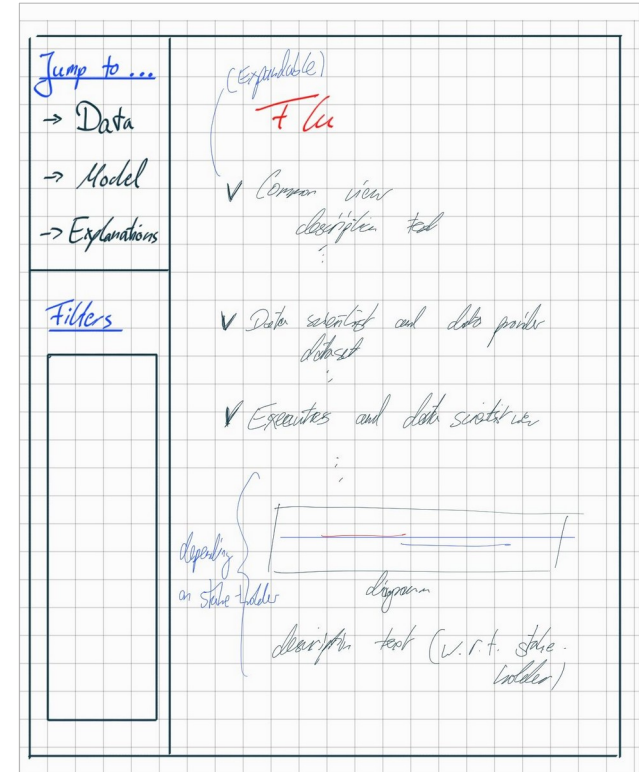 Jump to ...
→ Data
→ Model
→ Explanations
Filters
(Expandable)
Flu
V Common view
description text
⋮
V Data scientist and data provider
dataset
⋮
V Executives and data scientist
⋮
depending
on stake holder
diagramm
description text (w.r.t. stake-
holder)